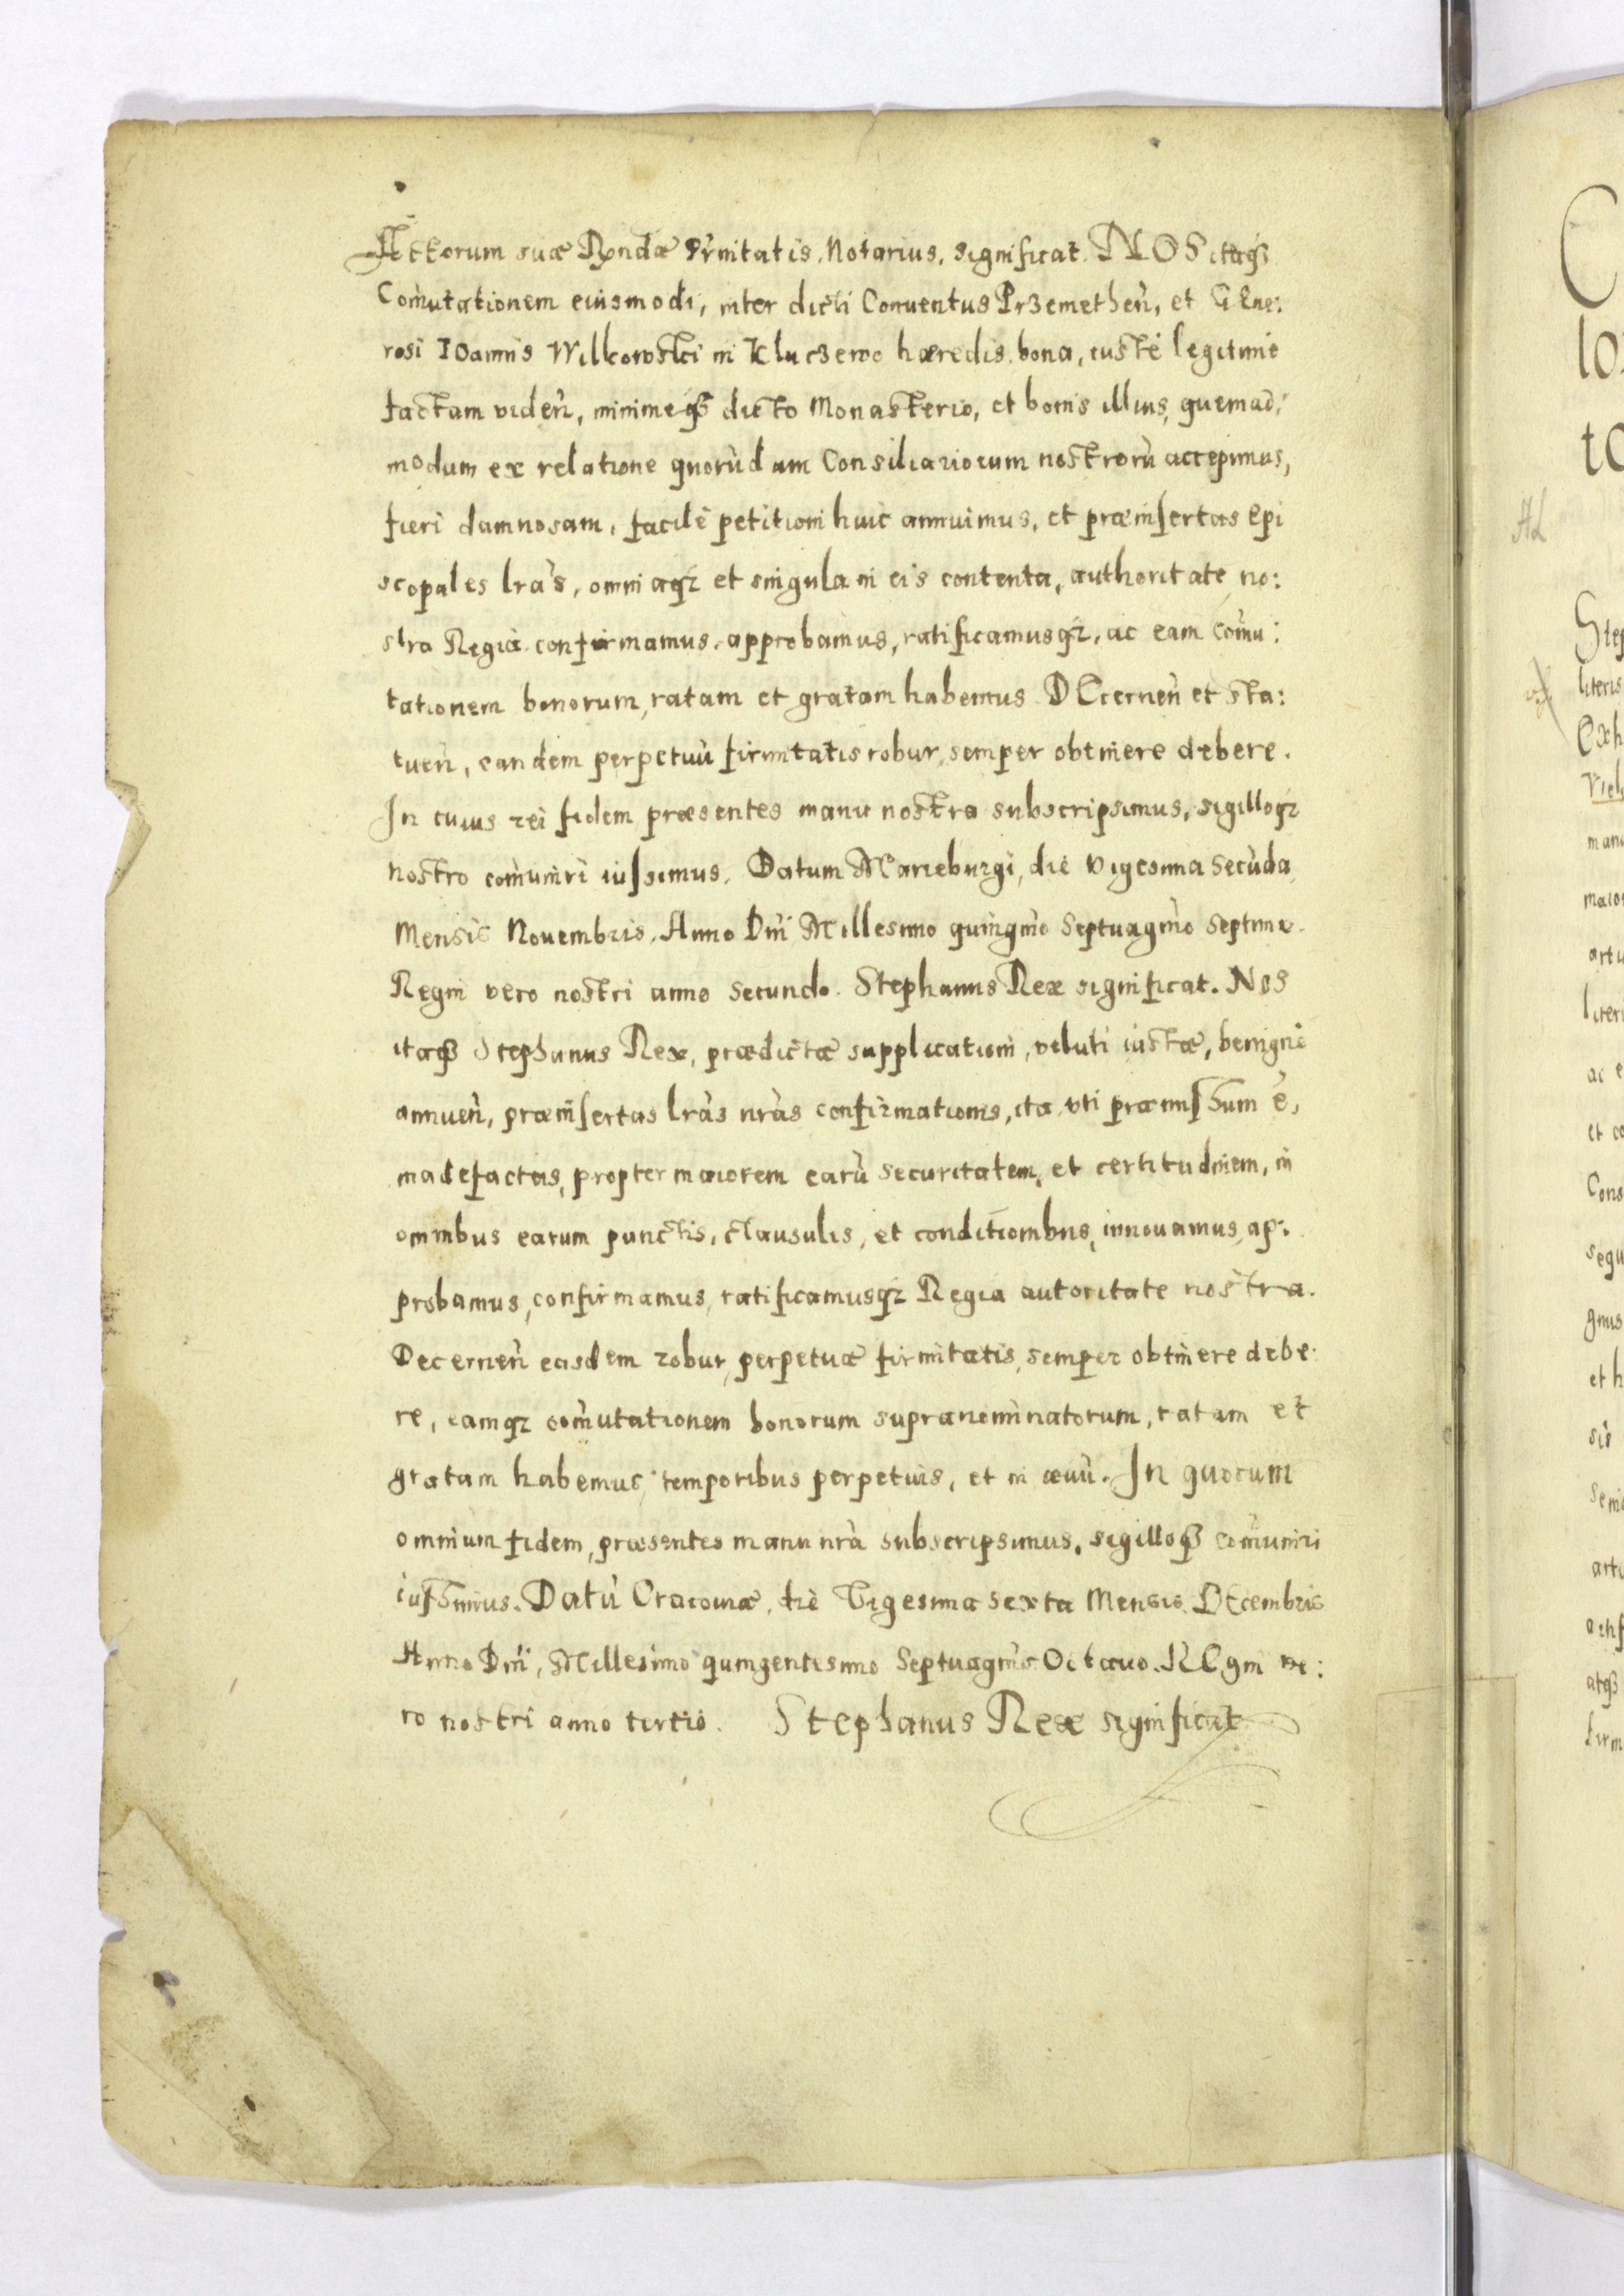 Actorum suæ Rndæ Prnitatis. Notarius, significat. NOS itaq3
Comutationem eiusmodi, inter dicti Conuentus Przemethen̄, et GEne:
rosi IOannis Wilkowskci in Kluczewo hæredis, bona, iustè legitimè
factam viden̄, minimeq3 dicto Monasterio, et bonis illius, quemad:
modum ex relatione quorùdam Consiliariorum nostrorù accepimus,
fieri damnosam, facilè petitioni huic annuimus, et præinsertas Epi
scopales lrãs, omniaq3 et singula in eis contenta, authoritate no:
stra Regia confirmamus, approbamus, ratificamusq3, ac eam comu:
tationem bonorum, ratam et gratam habemus DEcernen̄ et sta:
tuen̄, eandem perpetuù firmitatis robur, semper obtinere debere.
In cuius rei fidem præsentes manu nostra subscripsimus, sigilloq3
nostro comuniri iussimus. Datum Marieburgi, diè vigesima secùda
Mensis Nouembris. Anno Dnĩ Millesimo quingm̃o septuagm̃o septimo.
Regni vero nostri anno secundo. Stephanus Rex significat. Nos
itaq3 Stephanus Rex, prædictæ supplicationi, veluti iustæ, benignè
annuen̄, præinsertas lrãs nrãs confirmationis, ita vti præmissum ẽ,
madefactas, propter maiorem earù securitatem, et certitudinem, in
omnibus earum punctis, clausulis, et conditionibus, innouamus, ap:
probamus, confirmamus, ratificamusq3 Regia autoritate nostra.
Decernen̄ easdem robur, perpetuæ firmitatis, semper obtinere debe:
re, eamq3 comutationem bonorum supranominatorum, ratam et
gratam habemus, temporibus perpetuis, et in æuù. In quorum
omnium fidem, præsentes manu nrã subscripsimus, sigilloq3 comuniri
iussimus. Datù Cracouiæ, diè Vigesima sexta Mensis DEcembris
Anno Dnĩ, Millesimo quingentesimo Septuagm̃o Octauo. REgni ve:
ro nostri anno tertio. Stephanus Rex significat